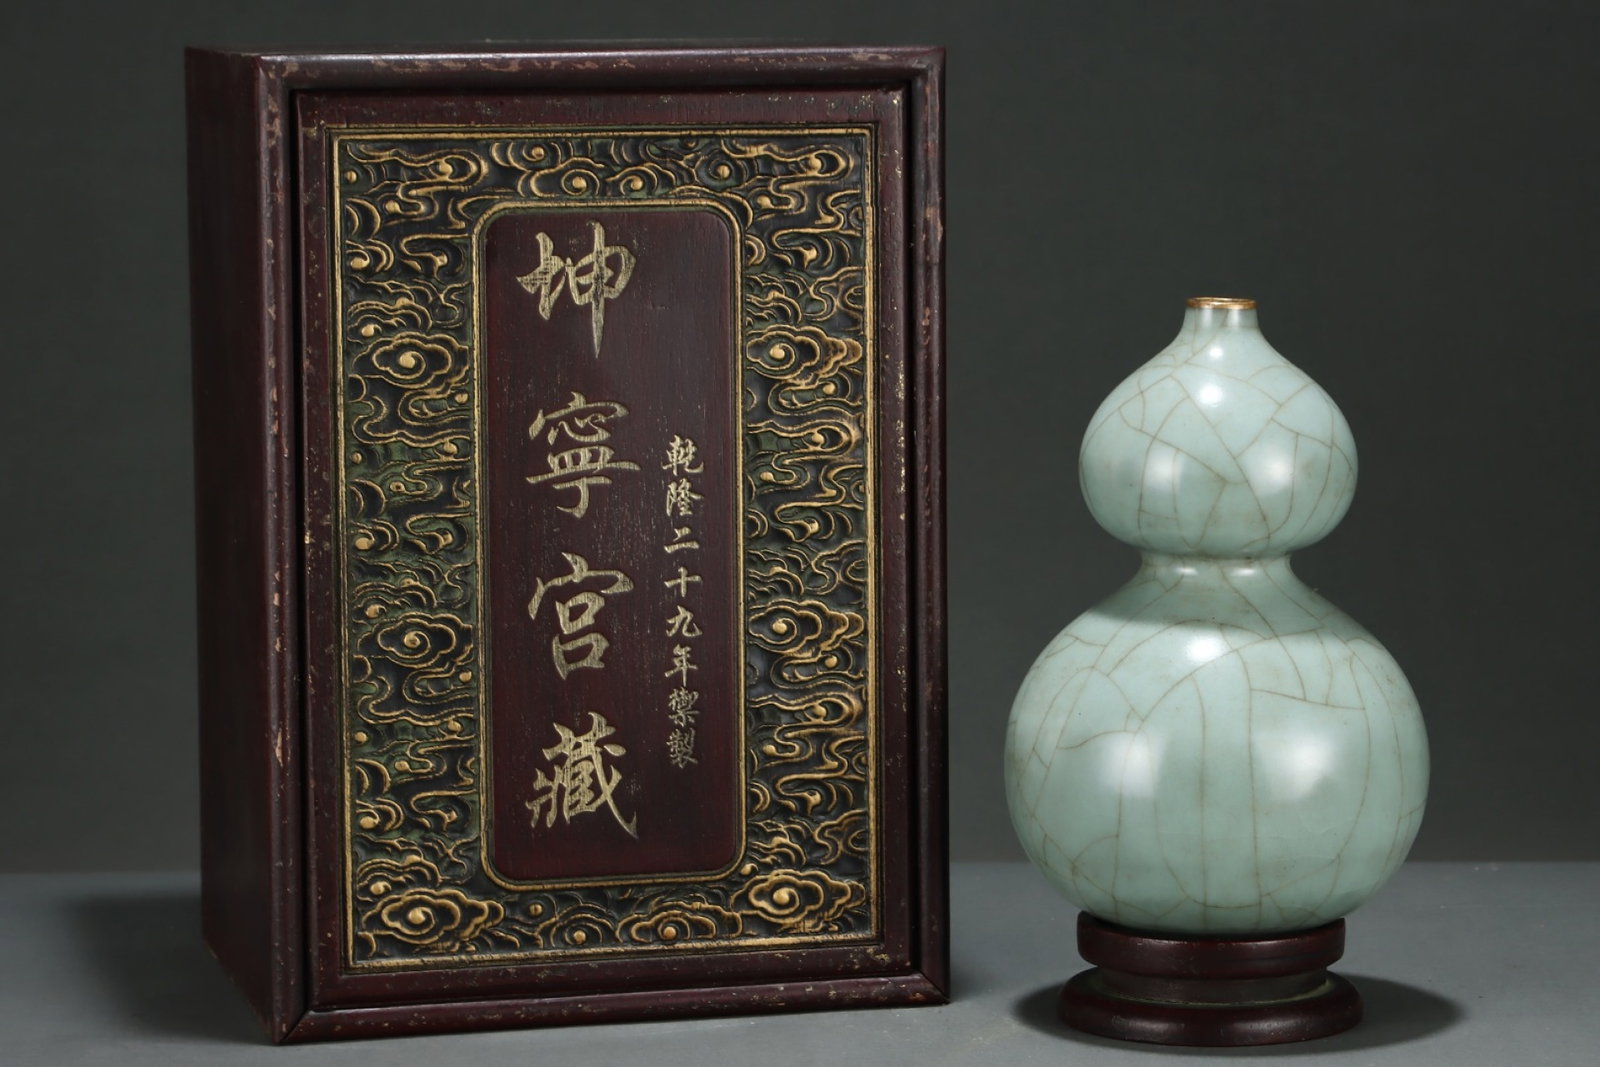 坤寧宮藏
乾隆二十九年禦製